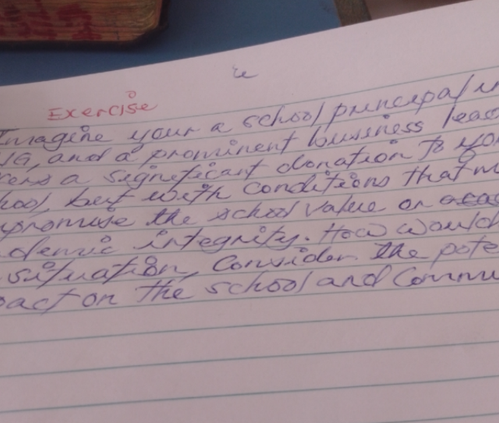 Exercise
Imagine your a school principal in
and a prominent business lead
a significant donation to yo
but with conditions that m
the school value or
integrity. How would
situation, Consider the pote
pact on the school and Commu